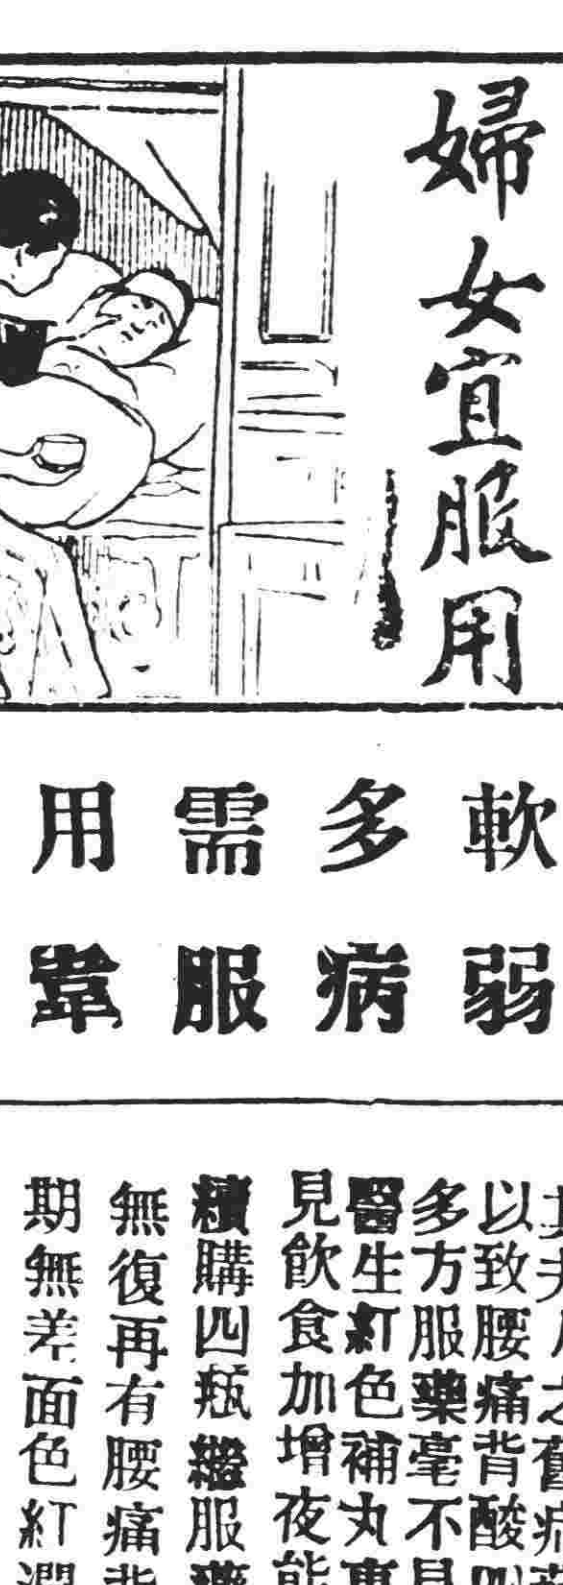 婦女宜服用
軟弱
多病
需服
用韋
以致腰痛背酸
多方服藥毫不見
醫生紅色補丸
見飲食加增夜能
續購四瓶繼服藥
無復再有腰痛背
期無差面色紅潤